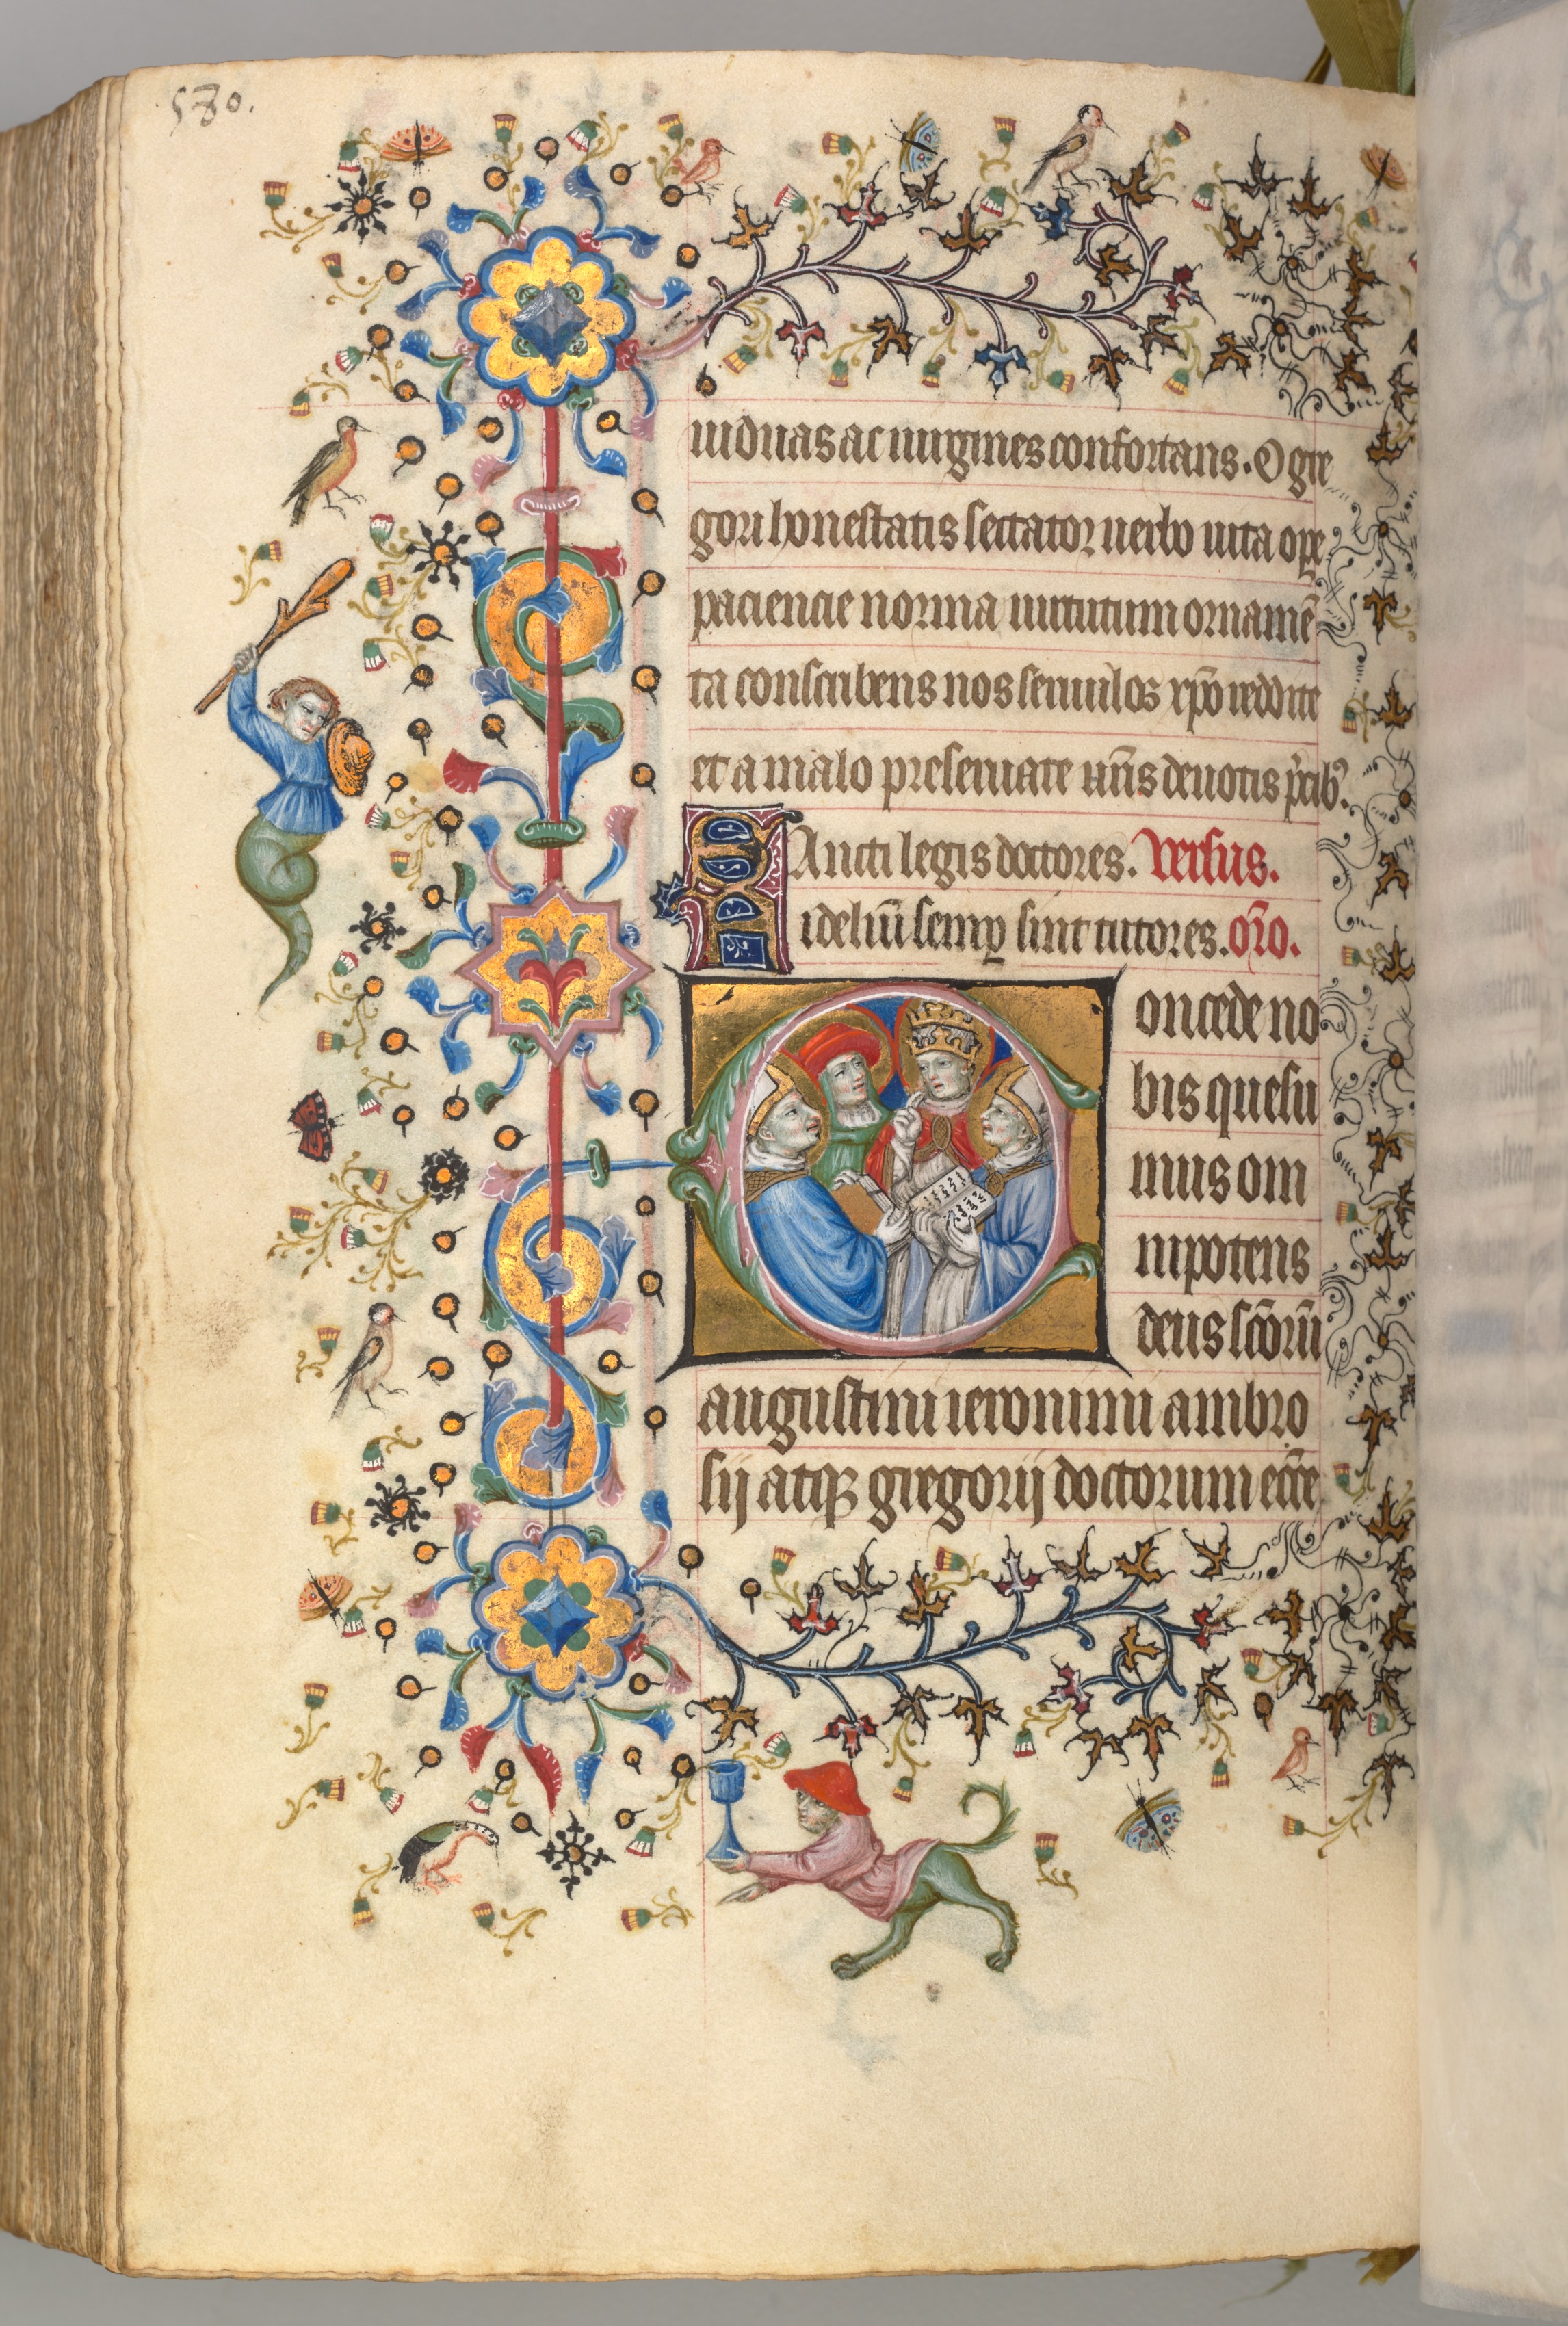 580.
uiduas ac uirgines confortans. O gre
gori honestatis sectator uerbo uita ope
paciencie norma uirtutum ornamē
ta conscribens nos seruulos xp̄o reddite
et a malo preseruate ur̄is deuotis p̄cib9.
Sancti legis doctores. Versus.
Fideliū semp̱ sint tutores. or̄o.
Concede no
bis quesu
mus om
nipotens
deus sc̄orū
augustini ieronimi ambro
sij atqꝫ gregorij doctorum ecc̄e